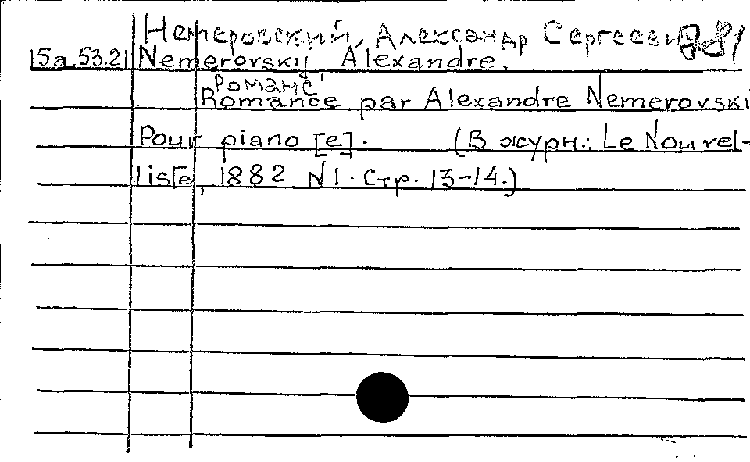 Немеровский, Александр Сергеевич
15а 53.21 Nemerovskij Alexandre.
Романс
Romance par Alexandre Nemerovski
Pour piano [e]. (В журн.: Le Nouvel-
lis[e, 1882 N1. Стр. 13-14.)